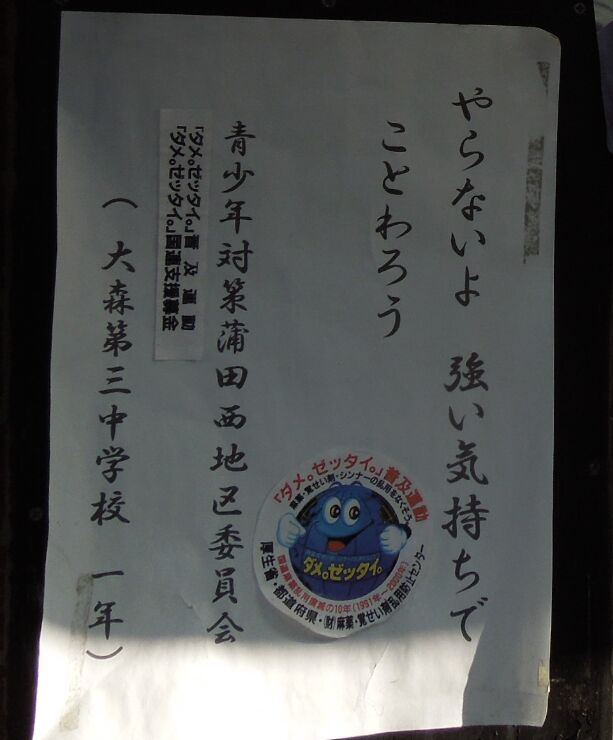 やらないよ　強い気持ちで
ことわろう
青少年対策蒲田西地区委員会
「ダメ。ゼッタイ。」普及運動
「ダメ。ゼッタイ。」国連支援募金
（大森第三中学校　一年）
「ダメ。ゼッタイ。」普及運動
麻薬・覚せい剤・シンナーの乱用をなくそう
ダメ。ゼッタイ。
国連麻薬乱用撲滅の10年(1991年〜2000年)
厚生省・都道府県・(財)麻薬・覚せい剤乱用防止センター